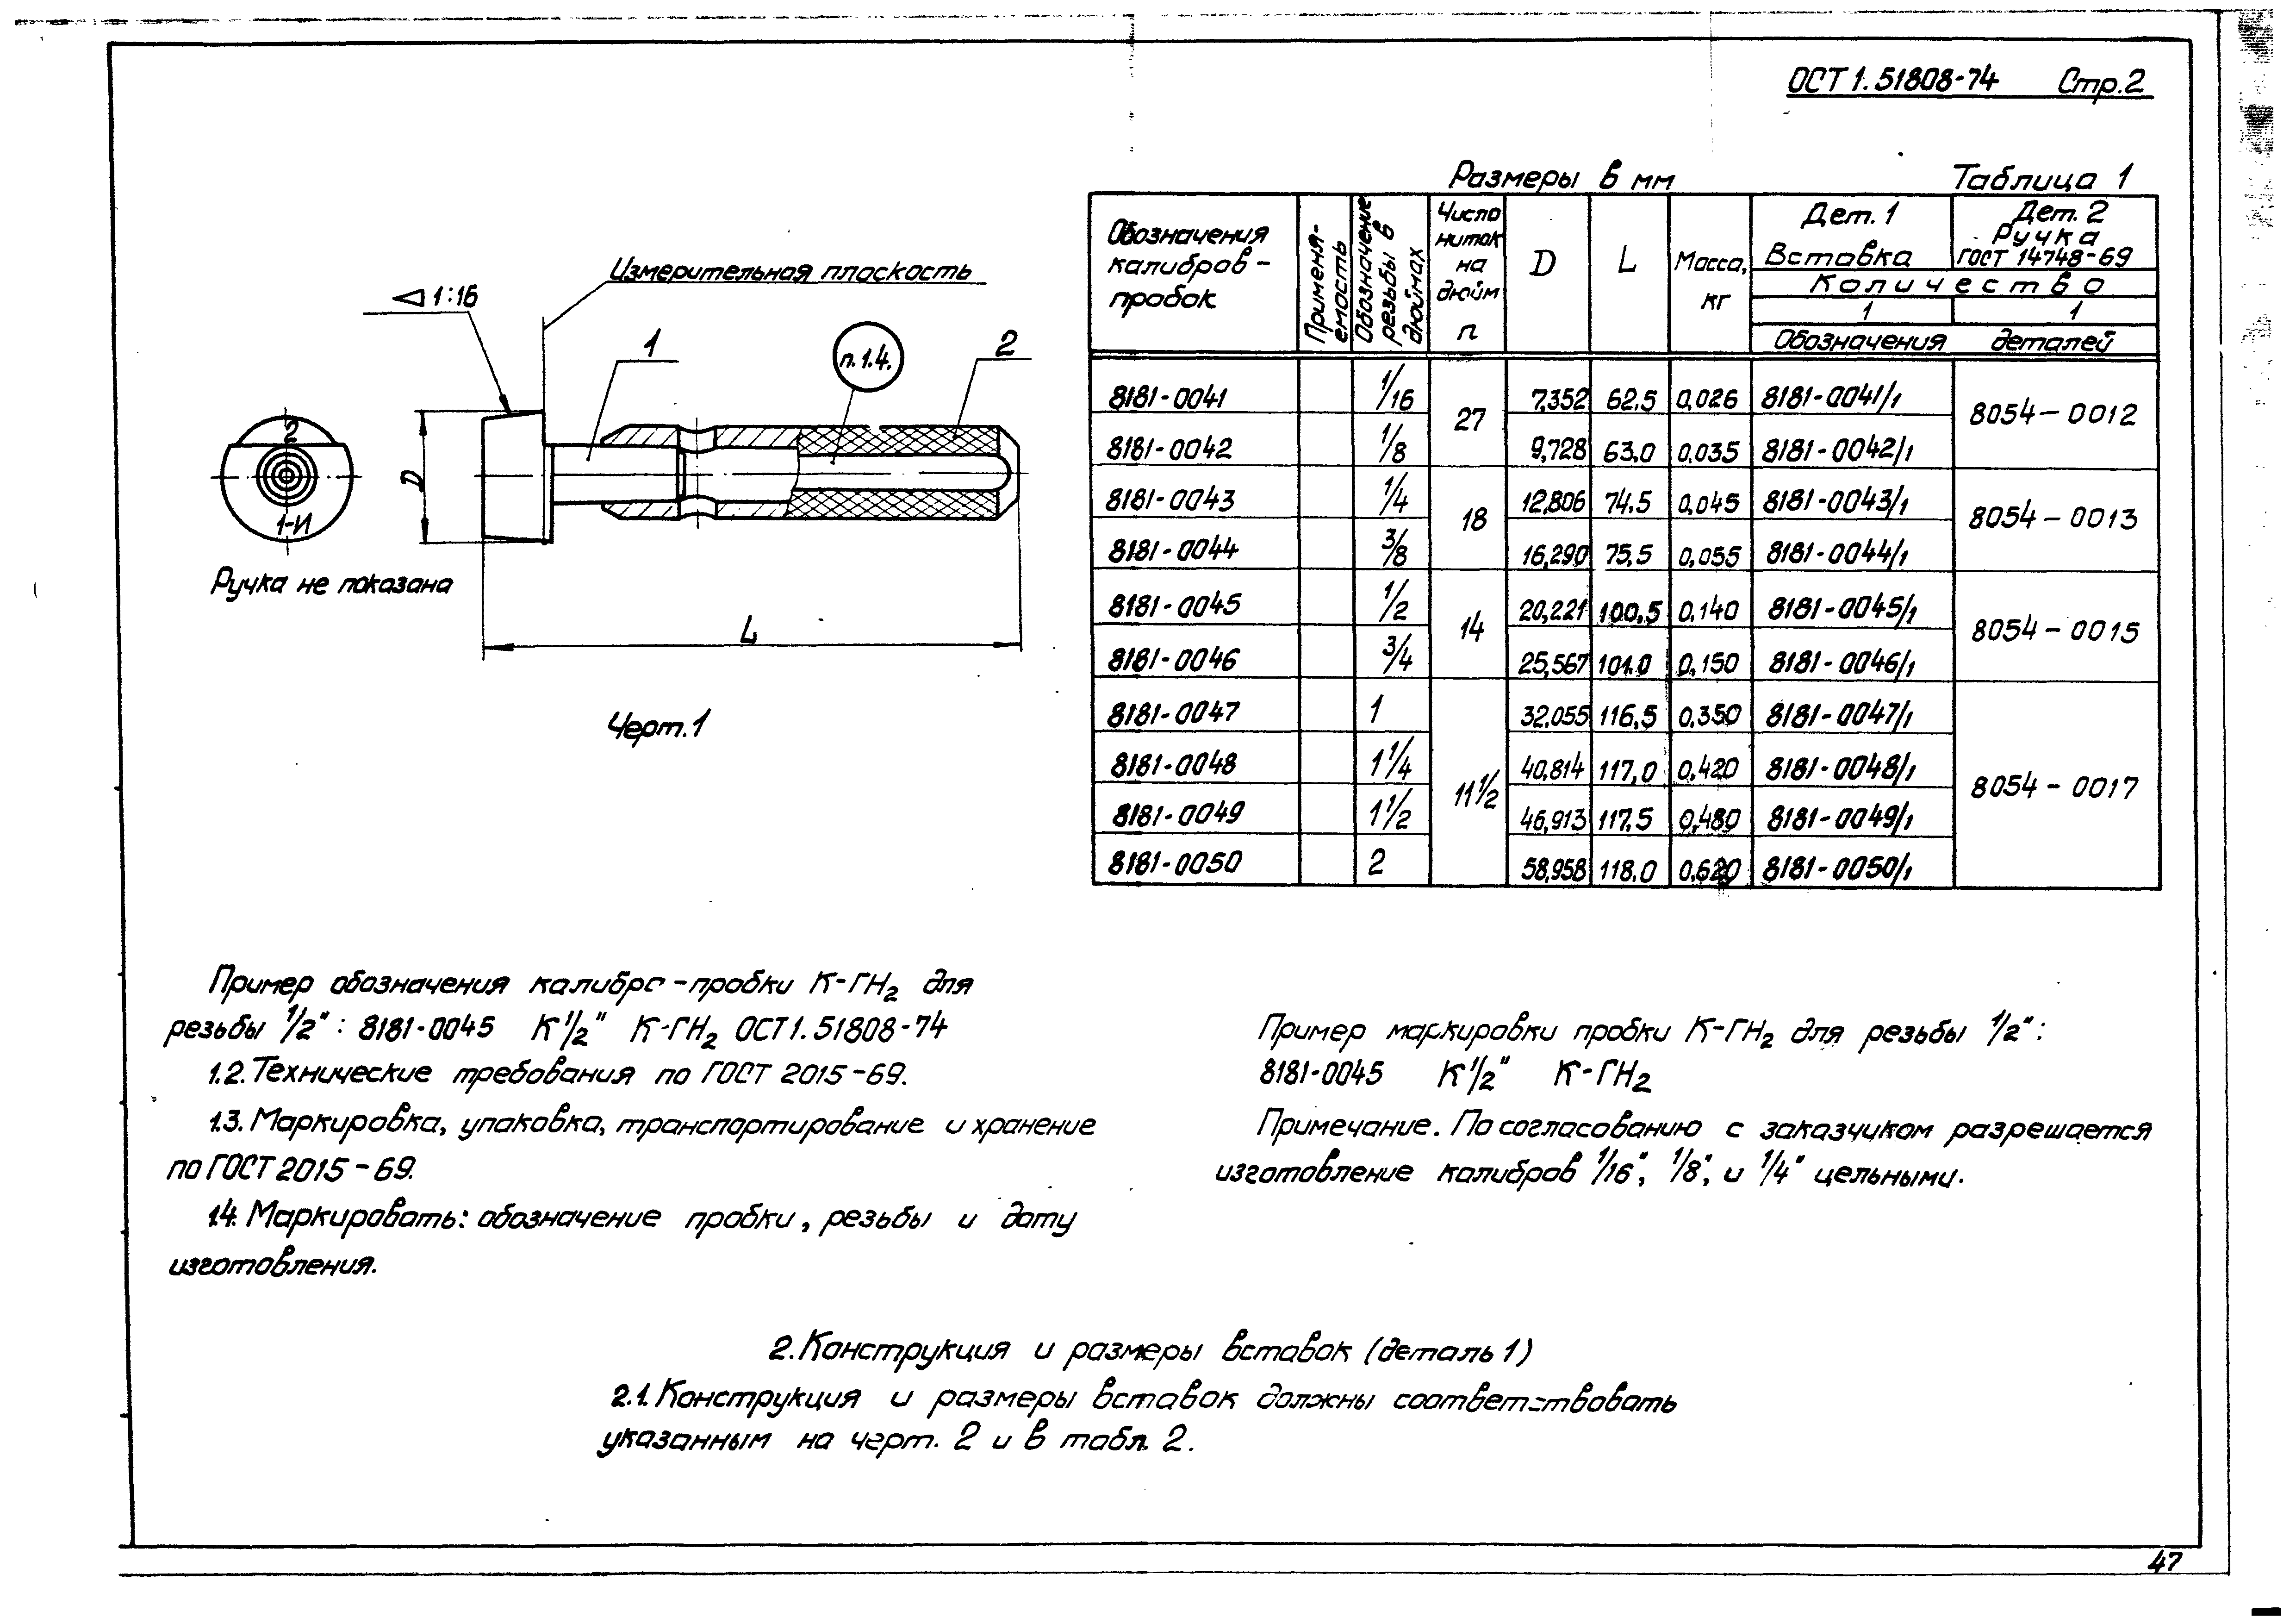 ОСТ 1.51808-74 Стр.2
Измерительная плоскость
◁ 1:16
1
п. 1.4.
2
2
1-И
D
L
Ручка не показана
Черт.1
Размеры в мм Таблица 1
Обозначения калибров-пробок
Применяемость
Обозначение резьбы в дюймах
Число ниток на дюйм n
D
L
Масса, кг
Дет. 1 Вставка
Дет. 2 Ручка ГОСТ 14748-69
Количество
1 1
Обозначения деталей
8181-0041 1/16 27 7,352 62.5 0,026 8181-0041/1 8054-0012
8181-0042 1/8 9,728 63.0 0,035 8181-0042/1
8181-0043 1/4 18 12,806 74.5 0,045 8181-0043/1 8054-0013
8181-0044 3/8 16,290 75,5 0,055 8181-0044/1
8181-0045 1/2 14 20,221 100,5 0,140 8181-0045/1 8054-0015
8181-0046 3/4 25,567 101.0 0,150 8181-0046/1
8181-0047 1 11 1/2 32.055 116,5 0.350 8181-0047/1 8054-0017
8181-0048 1 1/4 40,814 117,0 0,420 8181-0048/1
8181-0049 1 1/2 46,913 117.5 0,480 8181-0049/1
8181-0050 2 58,958 118.0 0,620 8181-0050/1
Пример обозначения калибра-пробки К-ГН₂ для
резьбы 1/2": 8181-0045 К 1/2" К-ГН₂ ОСТ 1.51808-74
1.2. Технические требования по ГОСТ 2015-69.
1.3. Маркировка, упаковка, транспортирование и хранение
по ГОСТ 2015-69.
1.4. Маркировать: обозначение пробки, резьбы и дату
изготовления.
Пример маркировки пробки К-ГН₂ для резьбы 1/2":
8181-0045 К 1/2" К-ГН₂
Примечание. По согласованию с заказчиком разрешается
изготовление калибров 1/16", 1/8", и 1/4" цельными.
2. Конструкция и размеры вставок (деталь 1)
2.1. Конструкция и размеры вставок должны соответствовать
указанным на черт. 2 и в табл. 2.
47